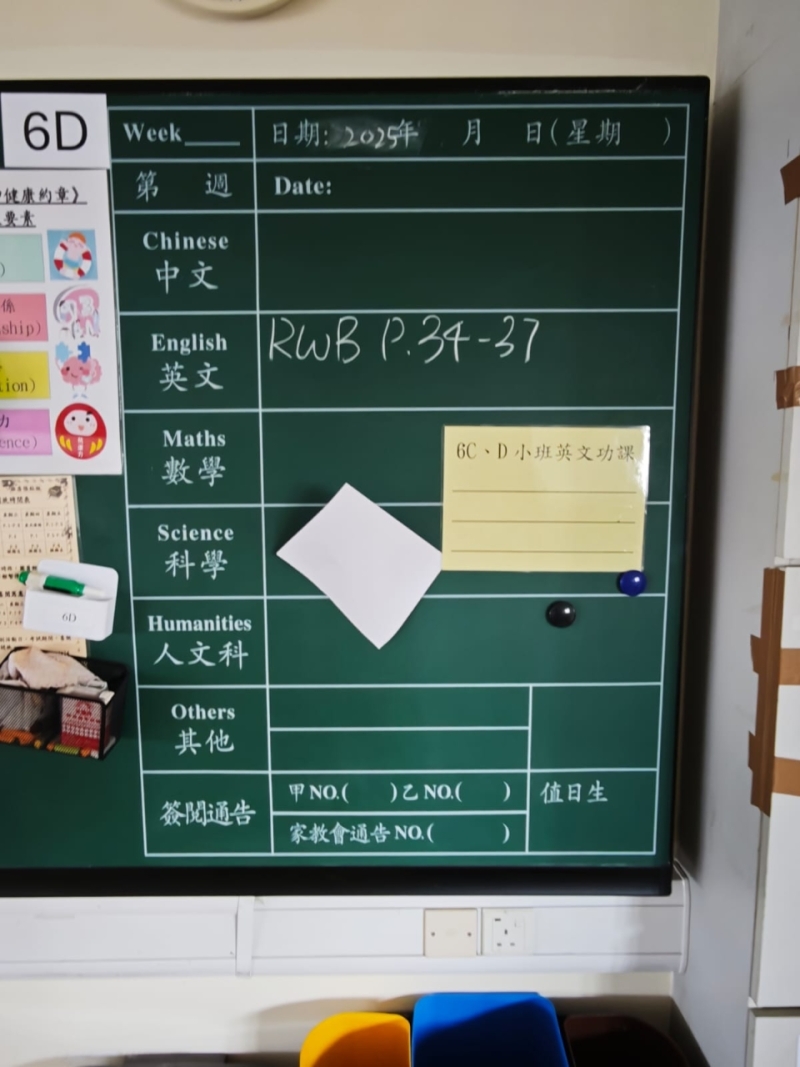 6D
Week____ 日期: 2025年 月 日(星期 )
第 週 Date:
健康約章》
要素
Chinese
中文
係
ship)
English
英文
RWB P.34-37
tion)
力
ence)
Maths
數學
6C、D小班英文功課
Science
科學
6D
Humanities
人文科
Others
其他
簽閱通告
甲NO.( )乙NO.( )
家教會通告NO.( )
值日生